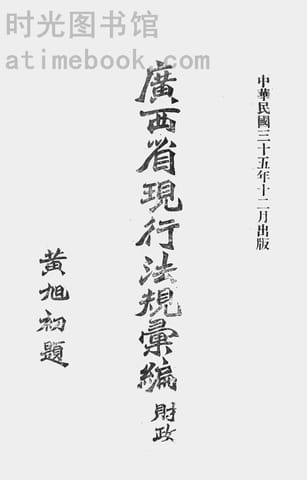 时光图书馆
atimebook.com
中華民國三十五年十二月出版
廣西省現行法規彙編
財政
黃旭初題